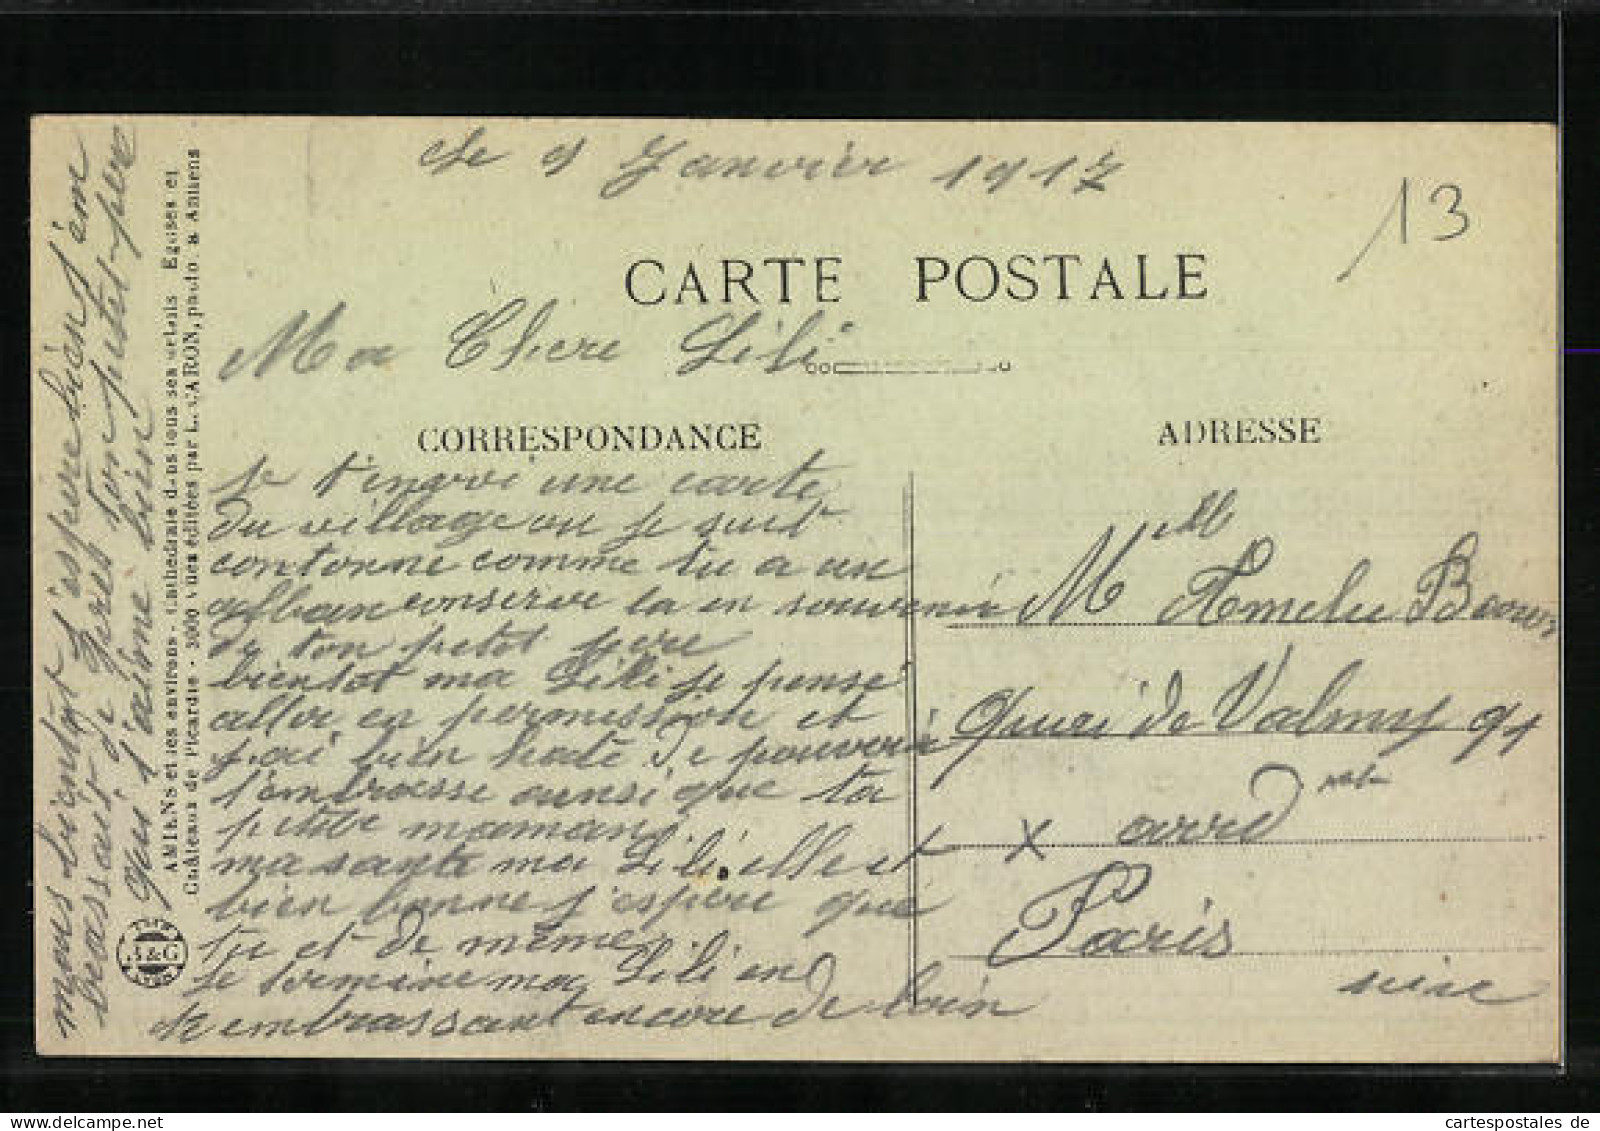 Le 9 Janvier 1917
13
CARTE POSTALE
Ma Chere Lili
CORRESPONDANCE
ADRESSE
Je t'envoi une carte
du village ou je suit
contonne comme tu a un
alban conserve la en souvenir
de ton petit pere
bientot ma Lili je pense
aller en permission et
j'ai bien hate de pouvoir
t'embrasse ainsi que ta
petite maman
ma sante ma Lili elle et
bien bonne j'espere que
tu et de meme
Je termine ma Lili en
t'embrassant encore de loin
mais bientot j'espere bien t'em
brassait de pres ton petit pere
qui t'aime bien
AMIENS et ses environs - Cathédrale dans tous ses détails Eglises et
Châteaux de Picardie - 3000 vues éditées par L. CARON, photo. à Amiens
Melle Amelie
quai de Valmy 91
X arrd
Paris
Seine
cartespostales.de